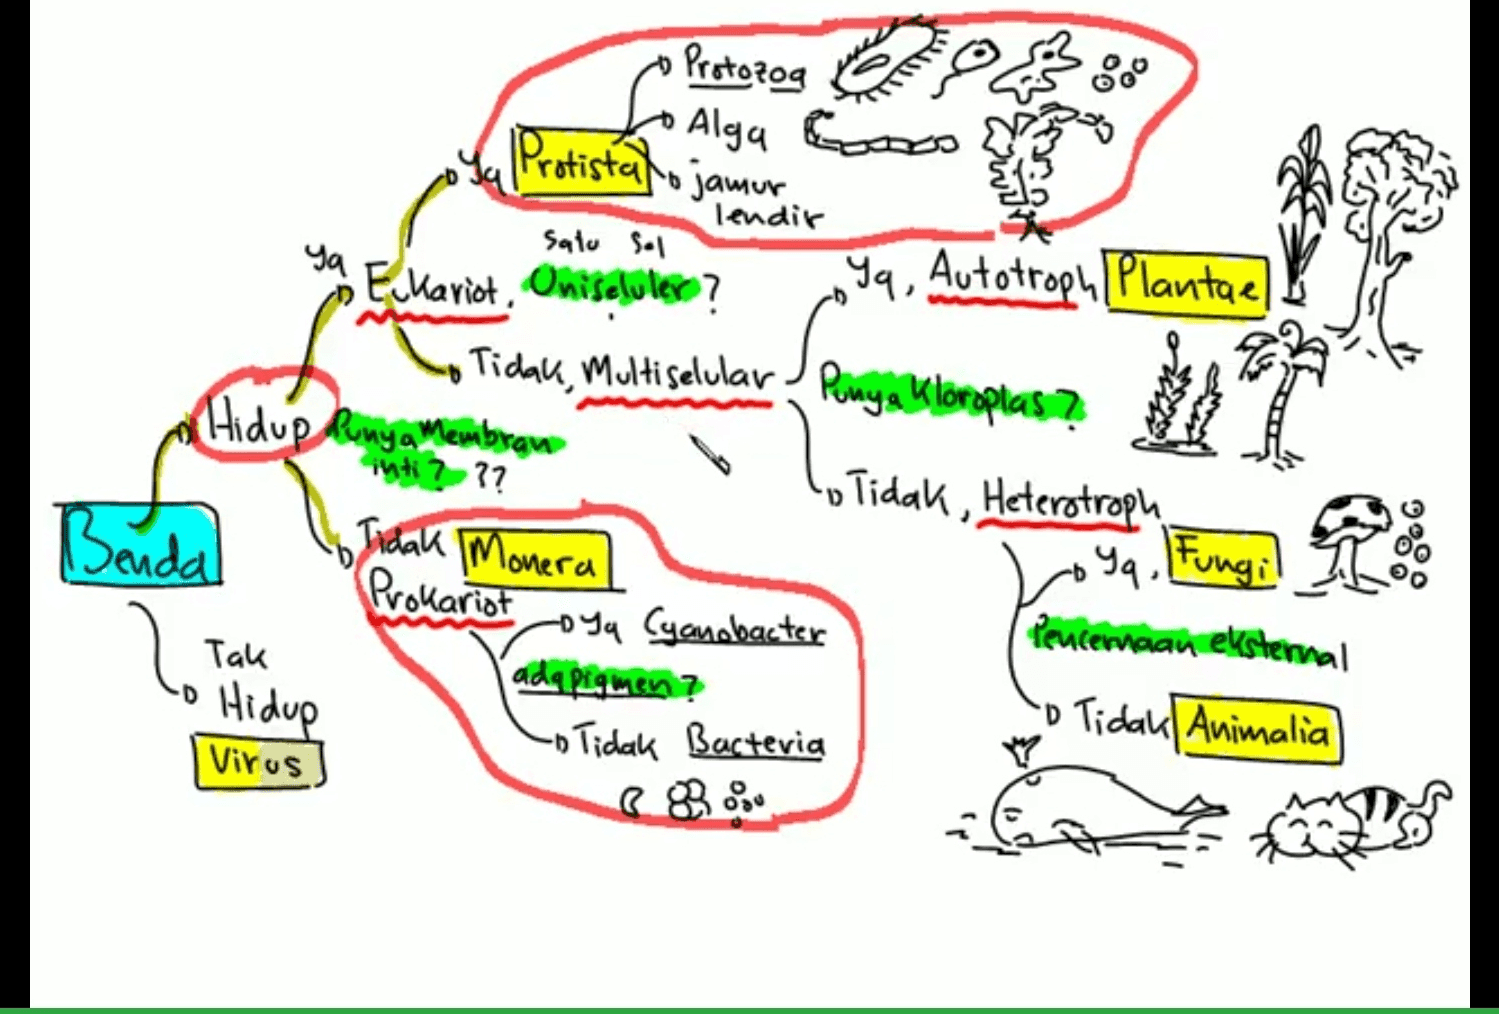 Protozoa
Alga
jamur
lendir
Ya
Protista
satu sel
Uniseluler?
Ya
Eukariot,
Tidak, Multiselular
Ya, Autotroph
Plantae
Punya Kloroplas?
Tidak, Heterotroph
Ya, Fungi
Pencernaan eksternal
Tidak Animalia
Hidup
Punya Membran
inti? ??
Benda
Tidak Monera
Prokariot
Ya Cyanobacter
ada pigmen?
Tidak Bacteria
Tak
Hidup
Virus